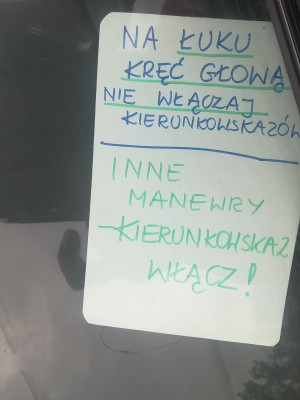 NA ŁUKU
KRĘĆ GŁOWĄ
NIE WŁĄCZAJ
KIERUNKOWSKAZÓW
INNE
MANEWRY
-KIERUNKOWSKAZ
WŁĄCZ!